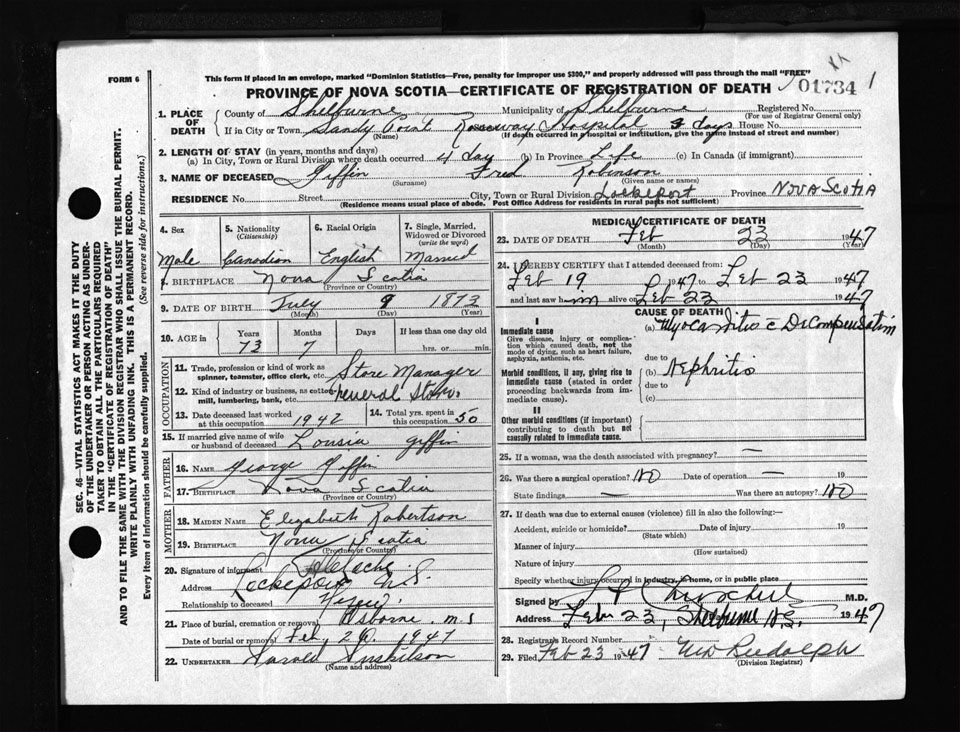 FORM 6
This form if placed in an envelope, marked "Dominion Statistics—Free, penalty for improper use $300," and properly addressed will pass through the mail "FREE"
PROVINCE OF NOVA SCOTIA—CERTIFICATE OF REGISTRATION OF DEATH
01734
1. PLACE OF DEATH
County of Shelburne Municipality of Shelburne Registered No.
(For use of Registrar General only)
If in City or Town Sandy Point Roseway Hospital 3 days House No.
(Name) (If death occurred in a hospital or institution, give the name instead of street and number)
2. LENGTH OF STAY (in years, months and days)
(a) In City, Town or Rural Division where death occurred 4 day (b) In Province Life (c) In Canada (if immigrant)
3. NAME OF DECEASED Giffin Fred Robinson
(Surname) (Given name or names)
RESIDENCE No. Street City, Town or Rural Division Lockeport Province NOVA SCOTIA
(Residence means usual place of abode. Post Office Address for residents in rural parts not sufficient)
4. Sex
Male
5. Nationality (Citizenship)
Canadian
6. Racial Origin
English
7. Single, Married, Widowed or Divorced (write the word)
Married
BIRTHPLACE Nova Scotia
(Province or Country)
9. DATE OF BIRTH July 9 1873
(Month) (Day) (Year)
10. AGE in Years Months If less than one day old
73 7 hrs. or min.
OCCUPATION
11. Trade, profession or kind of work as spinner, teamster, office clerk, etc. Store Manager
12. Kind of industry or business, as cotton mill, lumbering, bank, etc. General Store
13. Date deceased last worked at this occupation 1942
14. Total yrs. spent in this occupation 50
15. If married give name of wife or husband of deceased Giffin
FATHER
16. NAME George Giffin
17. BIRTHPLACE Nova Scotia
(Province or Country)
MOTHER
18. MAIDEN NAME Elizabeth Robertson
19. BIRTHPLACE Nova Scotia
(Province or Country)
20. Signature of informant
Address Lockeport N.S.
Relationship to deceased
21. Place of burial, cremation or removal Osborne
Date of burial or removal Feb. 1947
22. UNDERTAKER Harold
(Name and address)
MEDICAL CERTIFICATE OF DEATH
23. DATE OF DEATH Feb 23 1947
(Month) (Day) (Year)
24. I HEREBY CERTIFY that I attended deceased from:
Feb 19 1947 to Feb 23 1947
and last saw him alive on Feb 23 1947
CAUSE OF DEATH
I
Immediate cause
Give disease, injury or complication which caused death, not the mode of dying, such as heart failure, asphyxia, asthenia, etc.
(a) Myocarditis c̄ Decompensation
due to
Morbid conditions, if any, giving rise to immediate cause (stated in order proceeding backwards from immediate cause).
(b) Nephritis
due to
(c)
II
Other morbid conditions (if important) contributing to death but not causally related to immediate cause.
25. If a woman, was the death associated with pregnancy? —
26. Was there a surgical operation? No Date of operation — 19
State findings — Was there an autopsy? No
27. If death was due to external causes (violence) fill in also the following:—
Accident, suicide or homicide? Date of injury 19
(State which)
Manner of injury
(How sustained)
Nature of injury
Specify whether injury occurred in industry, in home, or in public place
Signed by M.D.
Address Feb 23, Shelburne N.S. 1947
28. Registrar's Record Number
29. Filed Feb 23 1947 Rudolph
(Division Registrar)
SEC. 46—VITAL STATISTICS ACT MAKES IT THE DUTY
OF THE UNDERTAKER OR PERSON ACTING AS UNDER-
TAKER TO OBTAIN ALL THE PARTICULARS REQUIRED
IN THE "CERTIFICATE OF REGISTRATION OF DEATH"
AND TO FILE THE SAME WITH THE DIVISION REGISTRAR WHO SHALL ISSUE THE BURIAL PERMIT.
WRITE PLAINLY WITH UNFADING INK. THIS IS A PERMANENT RECORD.
Every item of information should be carefully supplied. (See reverse side for instructions.)